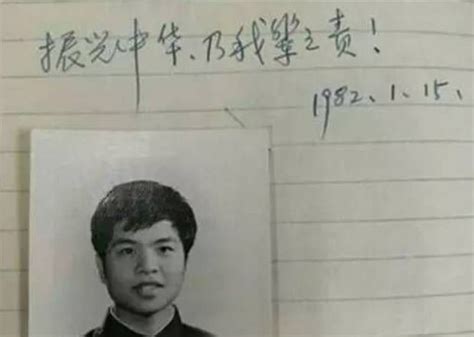 振兴中华、乃我辈之责！
1982.1.15.